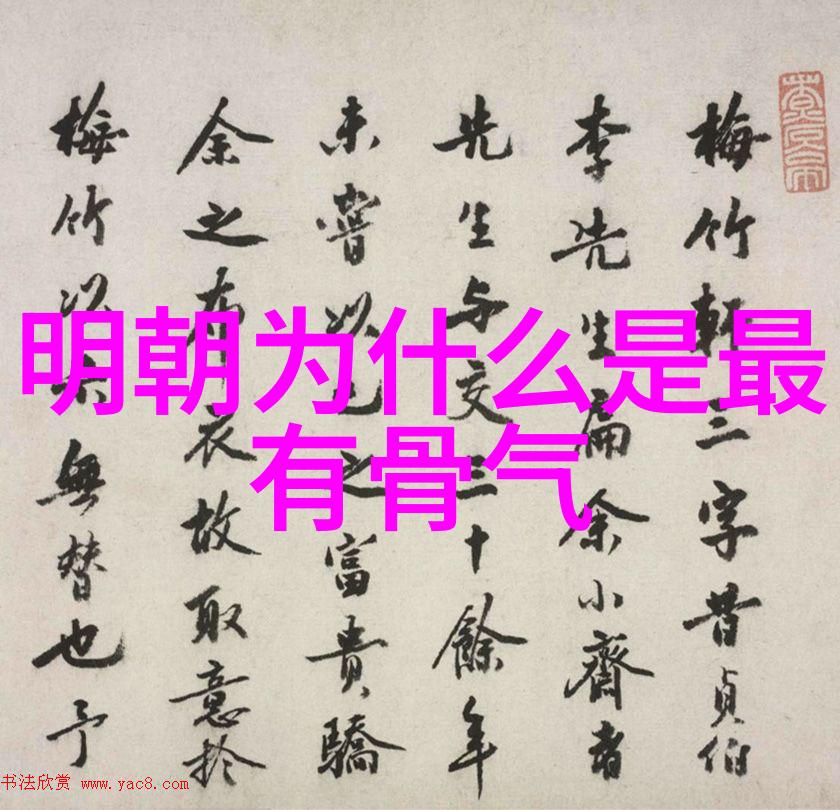 明朝为什么是最
有骨气
梅竹軒三字昔貞伯
李先生扁余小齋者
先生与交三十餘年
未嘗以己之富貴驕
余之布衣故取意於
梅竹以示無替也予
书法欣赏 www.yac8.com